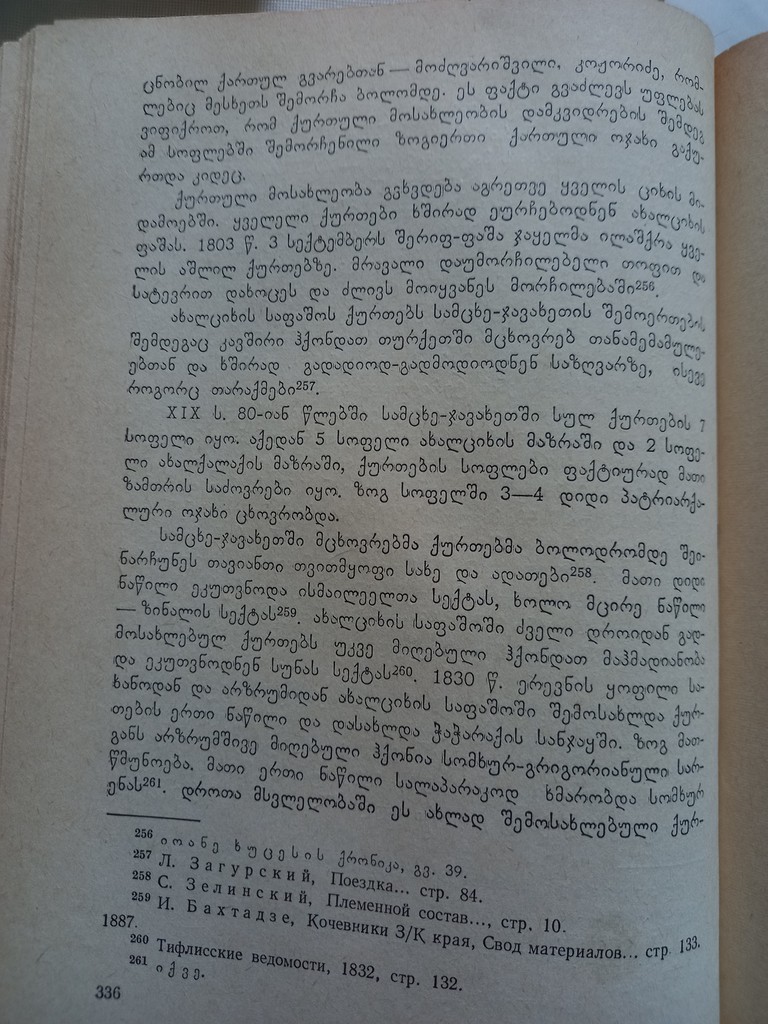 ცნობილ ქართულ გვარებთან — მოძღვარიშვილი, კოჟორიძე, რომ-
ლებიც მესხეთს შემორჩა ბოლომდე. ეს ფაქტი გვაძლევს უფლებას
ვიფიქროთ, რომ ქურთული მოსახლეობის დამკვიდრების შემდეგ
ამ სოფლებში შემორჩენილი ზოგიერთი ქართული ოჯახი გაქუ-
რთდა კიდეც.
ქურთული მოსახლეობა გვხვდება აგრეთვე ყველის ციხის მი-
დამოებში. ყველელი ქურთები ხშირად ეურჩებოდნენ ახალციხის
ფაშას. 1803 წ. 3 სექტემბერს შერიფ-ფაშა ჯაყელმა ილაშქრა ყვე-
ლის აშლილ ქურთებზე. მრავალი დაუმორჩილებელი თოფით და
სატევრით დახოცეს და ძლივს მოიყვანეს მორჩილებაში²⁵⁶.
ახალციხის საფაშოს ქურთებს სამცხე-ჯავახეთის შემოერთების
შემდეგაც კავშირი ჰქონდათ თურქეთში მცხოვრებ თანამემამულე-
ებთან და ხშირად გადადიოდ-გადმოდიოდნენ საზღვარზე, ისევე
როგორც თარაქმები²⁵⁷.
XIX ს. 80-იან წლებში სამცხე-ჯავახეთში სულ ქურთების 7
სოფელი იყო. აქედან 5 სოფელი ახალციხის მაზრაში და 2 სოფე-
ლი ახალქალაქის მაზრაში, ქურთების სოფლები ფაქტიურად მათი
ზამთრის საძოვრები იყო. ზოგ სოფელში 3—4 დიდი პატრიარქა-
ლური ოჯახი ცხოვრობდა.
სამცხე-ჯავახეთში მცხოვრებმა ქურთებმა ბოლოდრომდე შეი-
ნარჩუნეს თავიანთი თვითმყოფი სახე და ადათები²⁵⁸. მათი დიდი
ნაწილი ეკუთვნოდა ისმაილეელთა სექტას, ხოლო მცირე ნაწილი
— ზინალის სექტას²⁵⁹. ახალციხის საფაშოში ძველი დროიდან გად-
მოსახლებულ ქურთებს უკვე მიღებული ჰქონდათ მაჰმადიანობა
და ეკუთვნოდნენ სუნას სექტას²⁶⁰. 1830 წ. ერევნის ყოფილი სა-
ხანოდან და არზრუმიდან ახალციხის საფაშოში შემოსახლდა ქურ-
თების ერთი ნაწილი და დასახლდა ჭაჭარაქის სანჯაყში. ზოგ მათ-
განს არზრუმშივე მიღებული ჰქონია სომხურ-გრიგორიანული სარ-
წმუნოება. მათი ერთი ნაწილი სალაპარაკოდ ხმარობდა სომხურ
ენას²⁶¹. დროთა მსვლელობაში ეს ახლად შემოსახლებული ქურ-
²⁵⁶ იოანე ხუცესის ქრონიკა, გვ. 39.
²⁵⁷ Л. Загурский, Поездка... стр. 84.
²⁵⁸ С. Зелинский, Племенной состав..., стр. 10.
²⁵⁹ И. Бахтадзе, Кочевники З/К края, Свод материалов... стр. 133.
1887.
²⁶⁰ Тифлисские ведомости, 1832, стр. 132.
²⁶¹ იქვე.
336